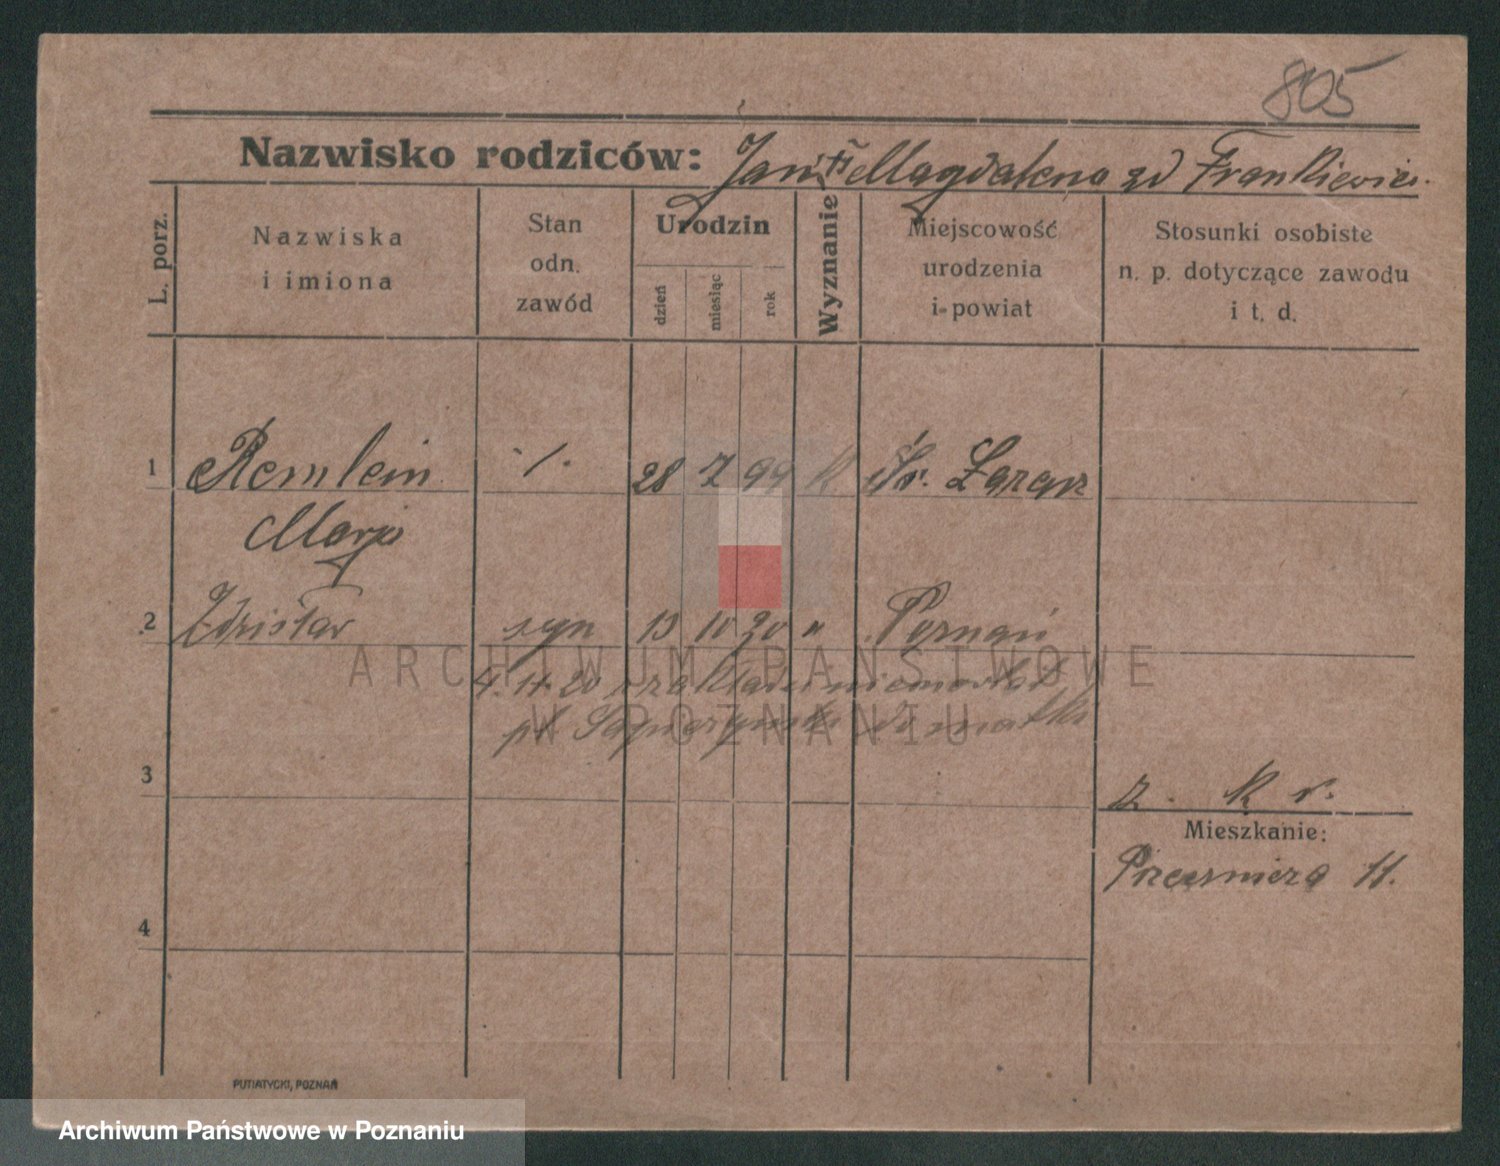 805
Nazwisko rodziców: Jan i Magdalena zd Frankiewicz
L. porz.
Nazwiska
i imiona
Stan
odn.
zawód
Urodzin
dzień
miesiąc
rok
Wyznanie
Miejscowość
urodzenia
i powiat
Stosunki osobiste
n. p. dotyczące zawodu
i t. d.
1 Remlein 28 7 99 K Św. Łazarz
Marja
2 Zdzisław syn 13 10 20 " Poznań
ARCHIWUM PAŃSTWOWE
W POZNANIU
4. 11. 20 z zakładu niemowląt
do matki
3
z. k r.
Mieszkanie:
11.
4
PUTIATYCKI, POZNAŃ
Archiwum Państwowe w Poznaniu